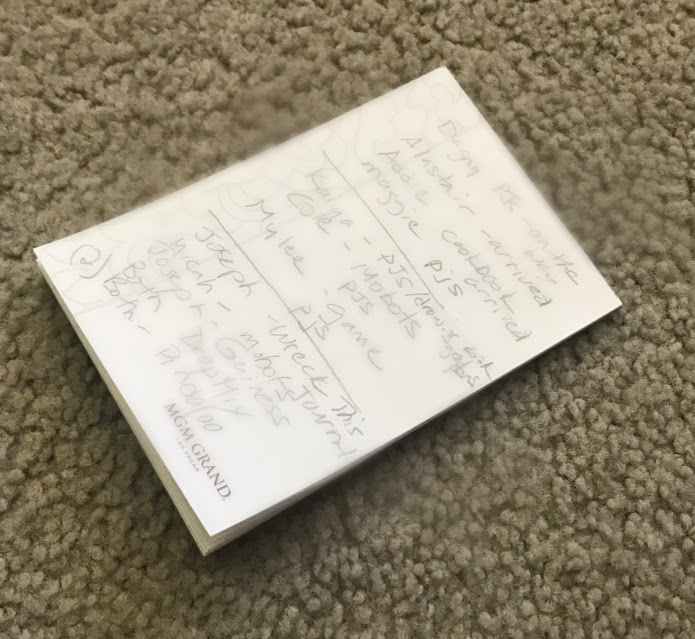 Dagny PJs - on the
way
Alastair - arrived
Addie cookbook arrived
Maggie PJs
Kaiya - PJs/drawing book
Cole - Mobots
PJs
Mylee - game
PJs
Joseph - Wreck This
Journal
Micah - Mobots
Joseph - Guiness
Both DropMix
(2) Both -
MGM GRAND
LAS VEGAS